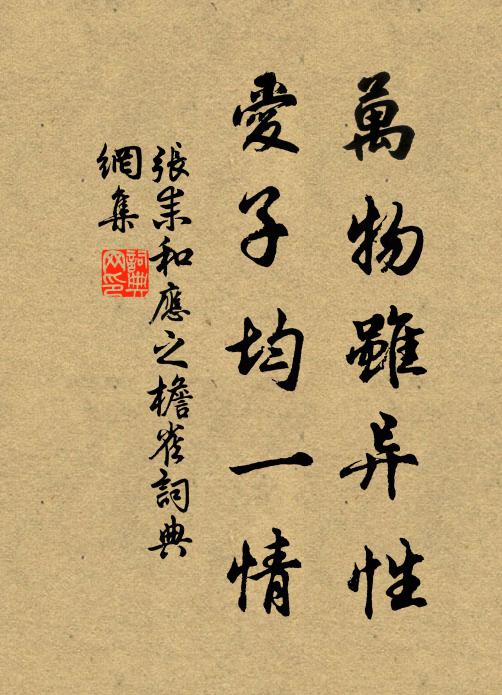 萬物雖异性
愛子均一情
張耒和應之檐雀詞典
網集
詞典
网印